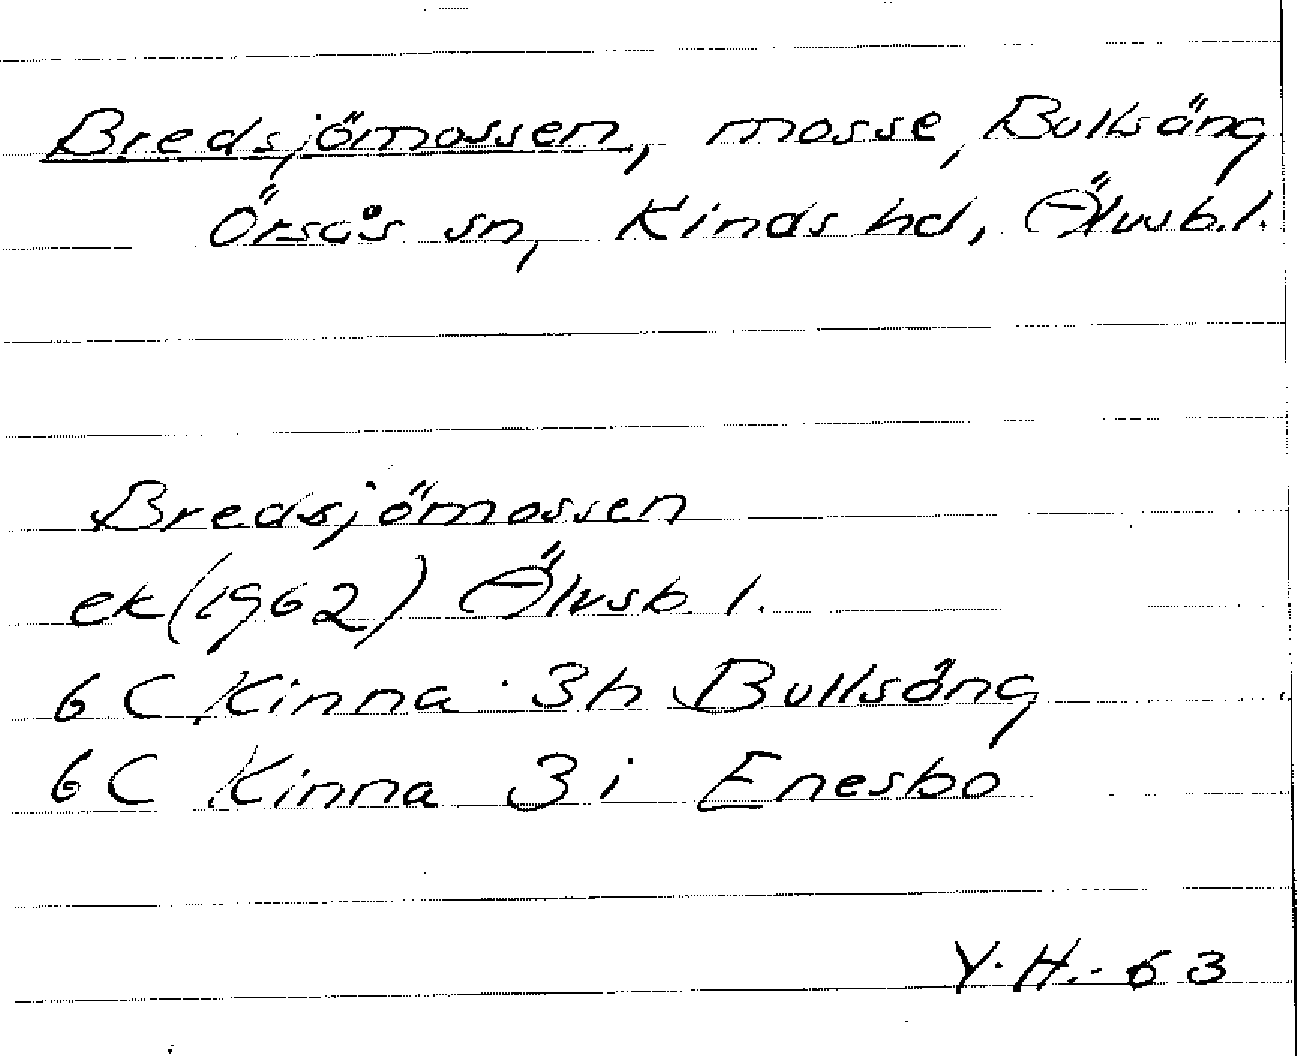 Bredsjömossen, mosse, Bullsäng
Örsås sn, Kinds hd, Älvsb.l.
Bredsjömossen
ek (1962) Älvsb. l.
6 C Kinna 3h Bullsäng
6 C Kinna 3 i Enesbo
Y. H. - 63